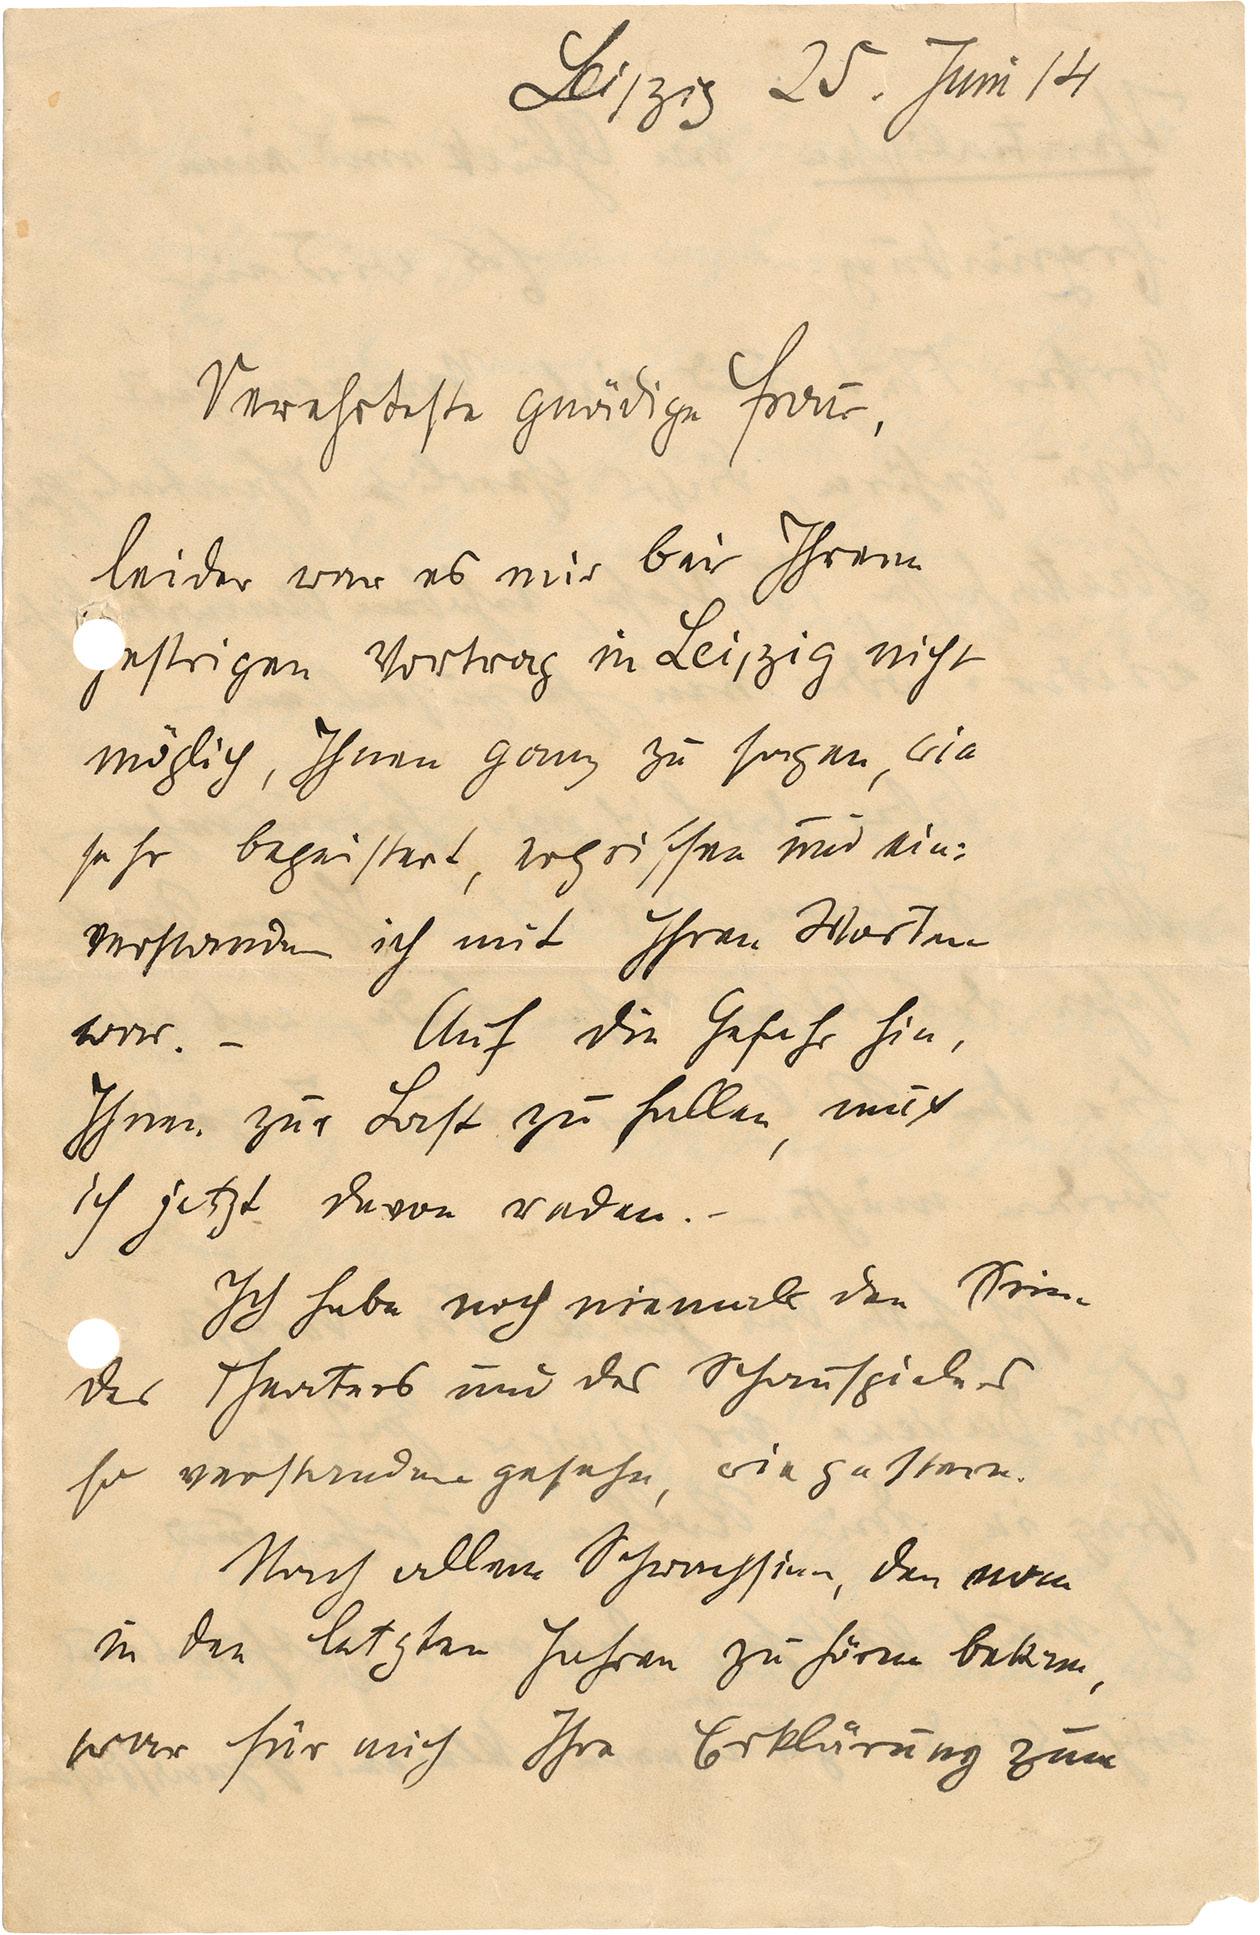 Leipzig 25. Juni 14
Verehrteste gnädige Frau,
leider war es mir bei Ihrem
gestrigen Vortrag in Leipzig nicht
möglich, Ihnen ganz zu sagen, wie
sehr begeistert, ergriffen und ein-
verstanden ich mit Ihren Worten
war. – Auf die Gefahr hin,
Ihnen zur Last zu fallen, muß
ich jetzt davon reden. –
Ich habe noch niemals den Sinn
des Theaters und des Schauspielers
so verstanden gesehn, wie gestern.
Nach allem Schwachsinn, den man
in den letzten Jahren zu hören bekam,
war für mich Ihre Erklärung zum